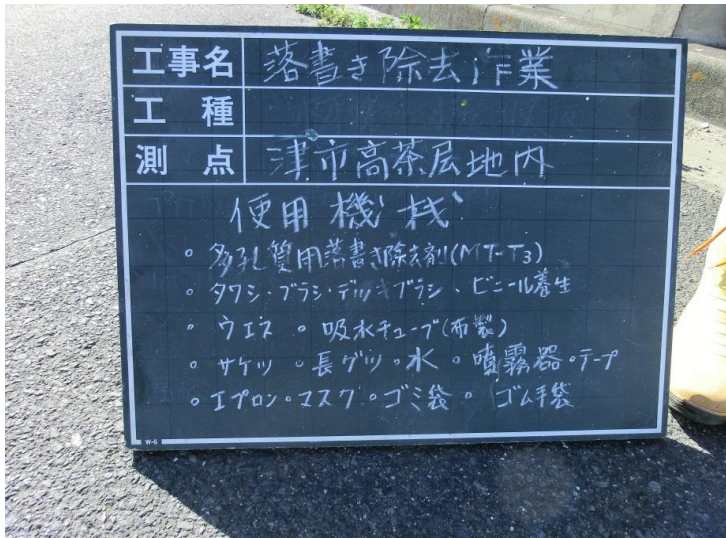 工事名 落書き除去作業
工種
測点 津市高茶屋地内
使用機械
・多孔質用落書き除去剤(MT-T3)
・タワシ・ブラシ・デッキブラシ・ビニール養生
・ウエス ・吸水チューブ(布製)
・サケツ ・長グツ・水 ・噴霧器・テープ
・エプロン・マスク・ゴミ袋・ ゴム手袋
W-6